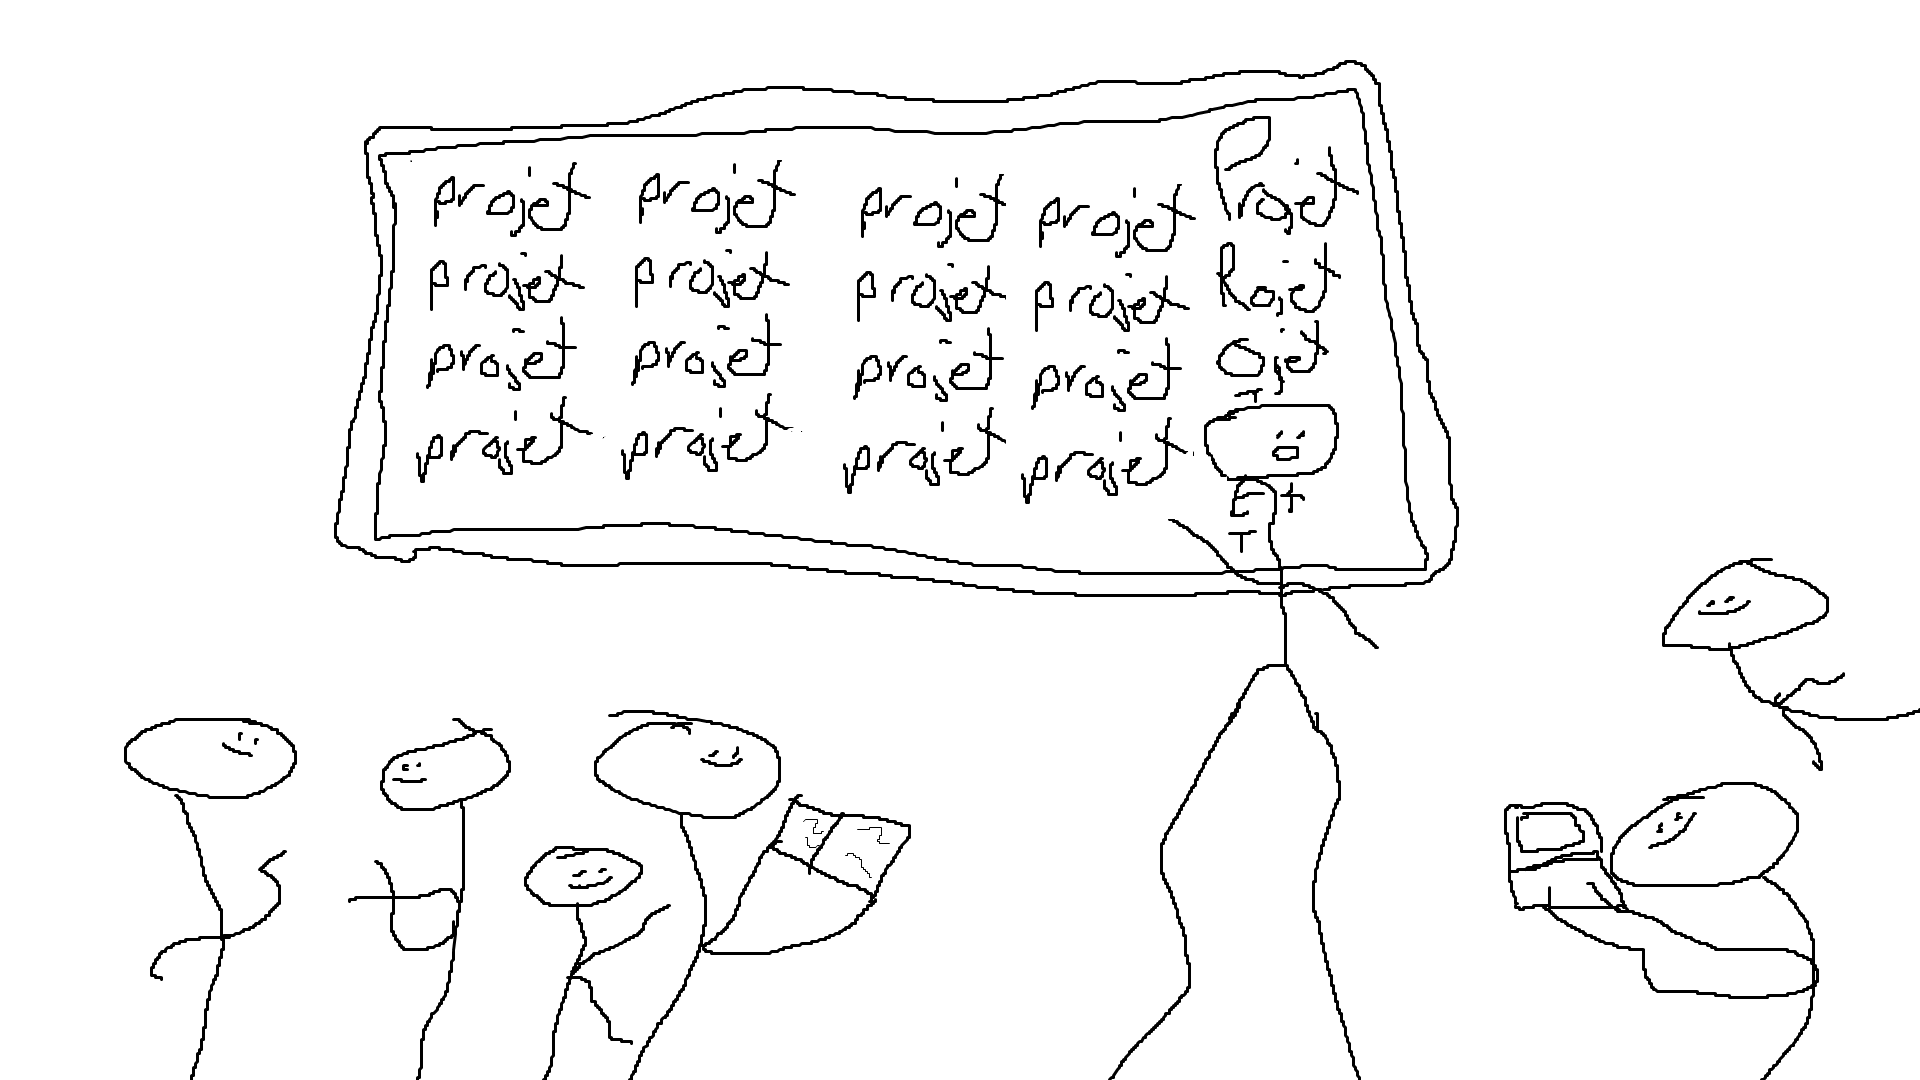 projet projet projet projet Projet
projet projet projet projet Rojet
projet projet projet projet ojet
projet projet projet projet
E t
T